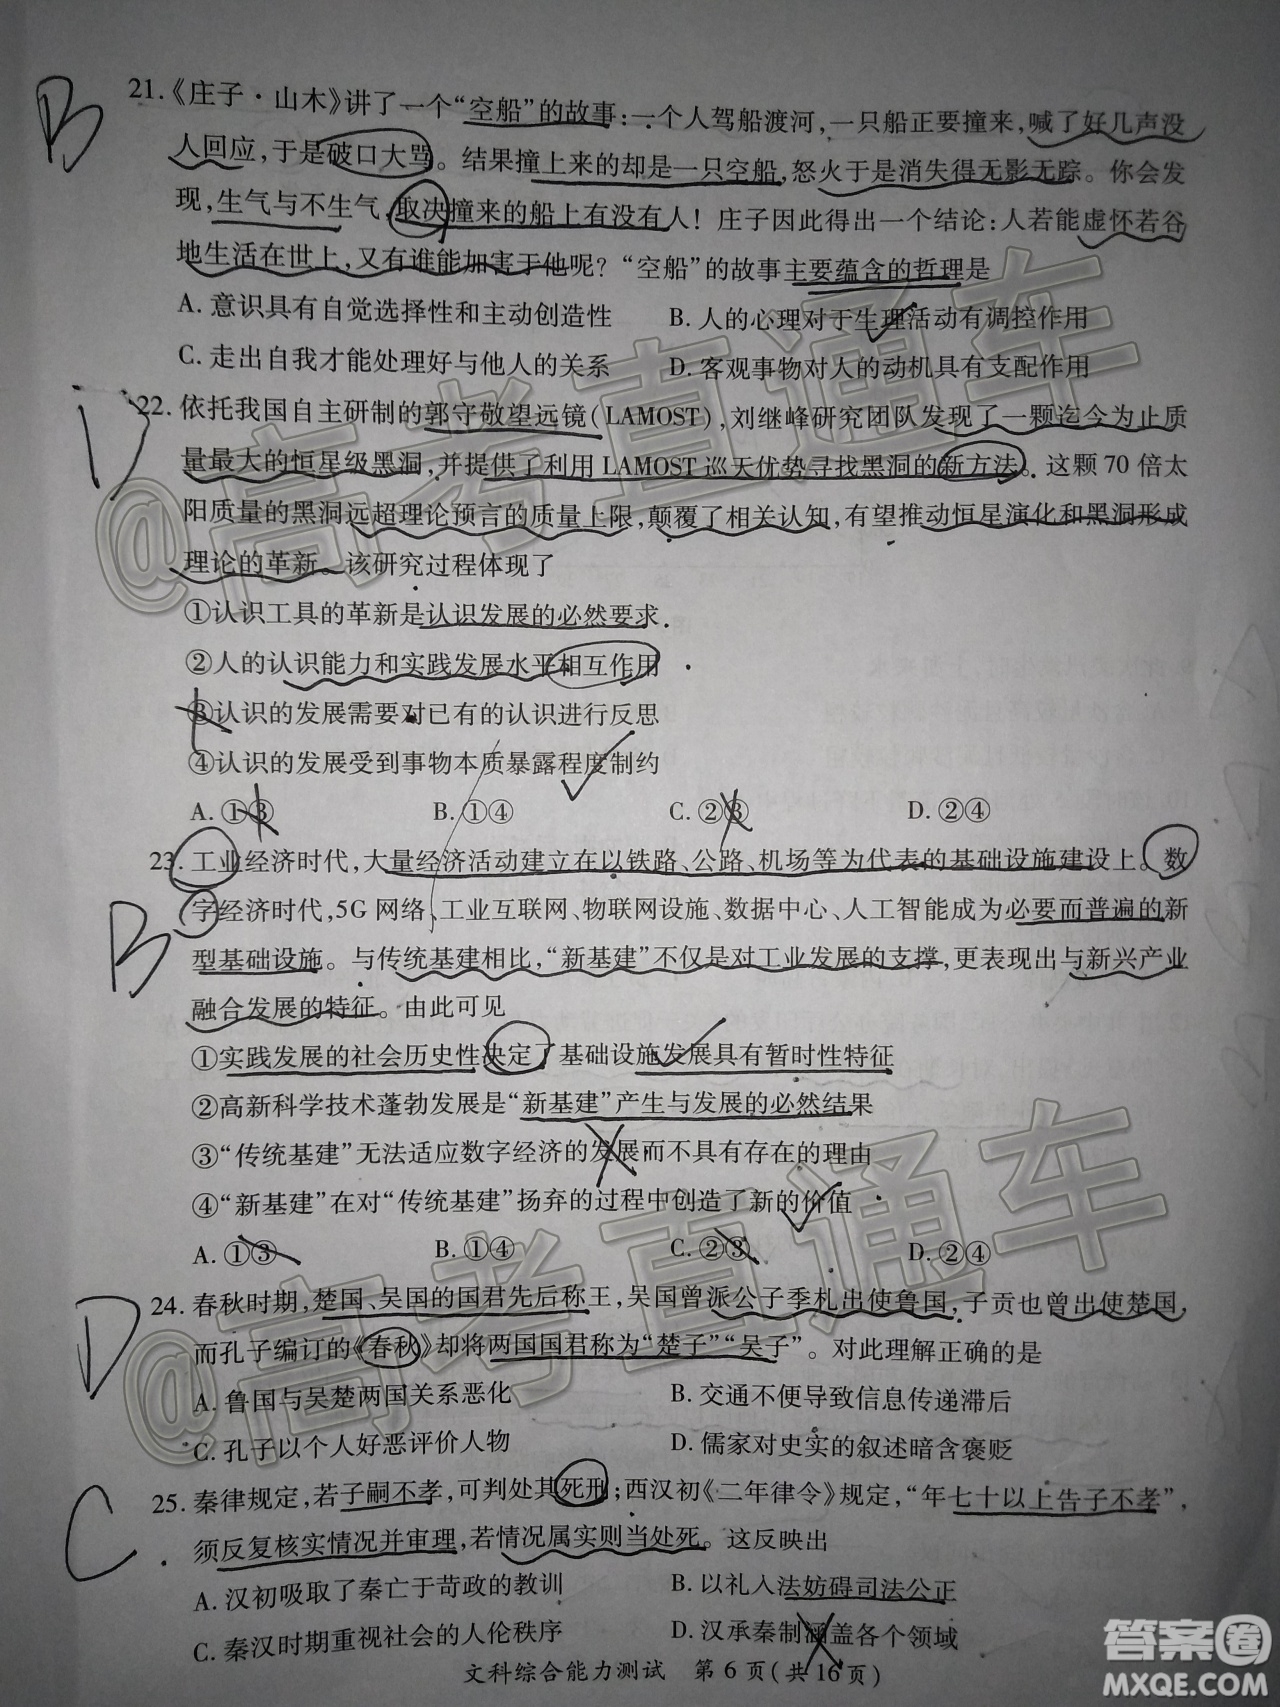 B
21.《庄子·山木》讲了一个“空船”的故事:一个人驾船渡河,一只船正要撞来,喊了好几声没
人回应,于是破口大骂。结果撞上来的却是一只空船,怒火于是消失得无影无踪。你会发
现,生气与不生气,取决撞来的船上有没有人!庄子因此得出一个结论:人若能虚怀若谷
地生活在世上,又有谁能加害于他呢?“空船”的故事主要蕴含的哲理是
A. 意识具有自觉选择性和主动创造性 B. 人的心理对于生理活动有调控作用
C. 走出自我才能处理好与他人的关系 D. 客观事物对人的动机具有支配作用
D
22. 依托我国自主研制的郭守敬望远镜(LAMOST),刘继峰研究团队发现了一颗迄今为止质
量最大的恒星级黑洞,并提供了利用 LAMOST 巡天优势寻找黑洞的新方法。这颗 70 倍太
阳质量的黑洞远超理论预言的质量上限,颠覆了相关认知,有望推动恒星演化和黑洞形成
理论的革新。该研究过程体现了
①认识工具的革新是认识发展的必然要求
②人的认识能力和实践发展水平相互作用
③认识的发展需要对已有的认识进行反思
④认识的发展受到事物本质暴露程度制约
A. ①③ B. ①④ C. ②③ D. ②④
23. 工业经济时代,大量经济活动建立在以铁路、公路、机场等为代表的基础设施建设上。数
字经济时代,5G 网络、工业互联网、物联网设施、数据中心、人工智能成为必要而普遍的新
B
型基础设施。与传统基建相比,“新基建”不仅是对工业发展的支撑,更表现出与新兴产业
融合发展的特征。由此可见
①实践发展的社会历史性决定了基础设施发展具有暂时性特征
②高新科学技术蓬勃发展是“新基建”产生与发展的必然结果
③“传统基建”无法适应数字经济的发展而不具有存在的理由
④“新基建”在对“传统基建”扬弃的过程中创造了新的价值
A. ①③ B. ①④ C. ②③ D. ②④
D
24. 春秋时期,楚国、吴国的国君先后称王,吴国曾派公子季札出使鲁国,子贡也曾出使楚国,
而孔子编订的《春秋》却将两国国君称为“楚子”“吴子”。对此理解正确的是
A. 鲁国与吴楚两国关系恶化 B. 交通不便导致信息传递滞后
C. 孔子以个人好恶评价人物 D. 儒家对史实的叙述暗含褒贬
C
25. 秦律规定,若子嗣不孝,可判处其死刑;西汉初《二年律令》规定,“年七十以上告子不孝”,
须反复核实情况并审理,若情况属实则当处死。这反映出
A. 汉初吸取了秦亡于苛政的教训 B. 以礼入法妨碍司法公正
C. 秦汉时期重视社会的人伦秩序 D. 汉承秦制涵盖各个领域
文科综合能力测试 第 6 页(共 16 页)
@高考直通车
@高考直通车
答案圈
MXQE.COM